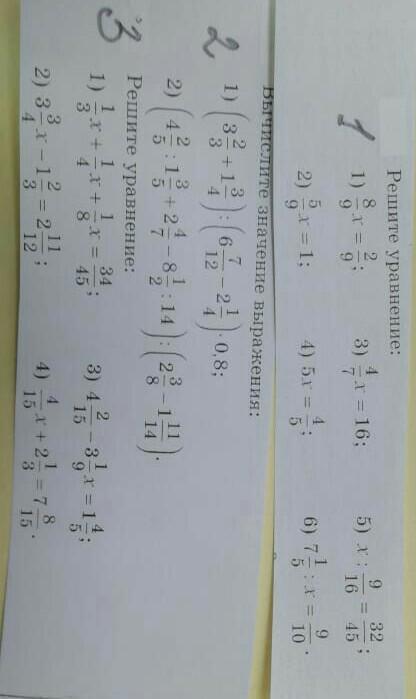 Решите уравнение:
1 1) 8/9 x = 2/9; 3) 4/7 x = 16; 5) x : 9/16 = 32/45;
2) 5/9 x = 1; 4) 5x = 4/5; 6) 7 1/5 : x = 9/10.
Вычислите значение выражения:
2 1) (3 2/3 + 1 3/4) : (6 7/12 − 2 1/4) · 0,8;
2) (4 2/5 : 1 3/5 + 2 4/7 − 8 1/2 : 14) : (2 3/8 − 1 11/14).
3 Решите уравнение:
1) 1/3 x + 1/4 x + 1/8 x = 34/45; 3) 4 2/15 − 3 1/9 x = 1 4/5;
2) 3 3/4 x − 1 2/3 = 2 11/12; 4) 4/15 x + 2 1/3 = 7 8/15.